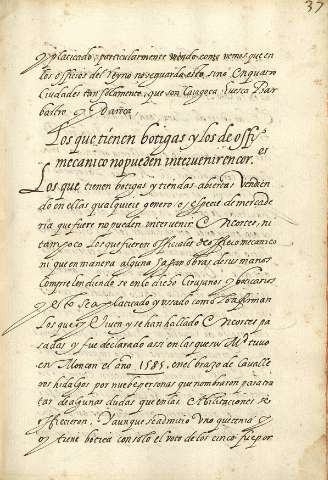 37
y platicado, y particularmente viendo como vemos que en
los officios del Reyno no se guarda esto, sino en quatro
Ciudades tan solamente, que son Çaragoça, Huesca Bar
bastro y Daroca,
Los que tienen botigas y los de offi.os
mecanico no pueden intervenir en cor.es
Los que tienen botigas y tiendas abiertas vendien
do en ellas qualquiere genero o especie de mercade
ria que fuere no pueden intervenir en cortes, ni
tampoco los que fueren officiales de officio mecanico
ni que en manera alguna hagan obras de sus manos
Comprehendiendo se en lo dicho Cirujanos y boticarios
y esto sea platicado y usado como lo affirman
los que oy viven y se han hallado en cortes pa
sadas y fue declarado assi en las que su M.d tuvo
en Monçon el año 1585. en el braço de Cavalle
ros hidalgos por nueve personas que nombraron para tra
tar de algunas dudas que en las Abilitaciones se
offrecieron. Y aunque se admitio uno que tenia y
oy tiene botica con solo el voto de los cinco fue por